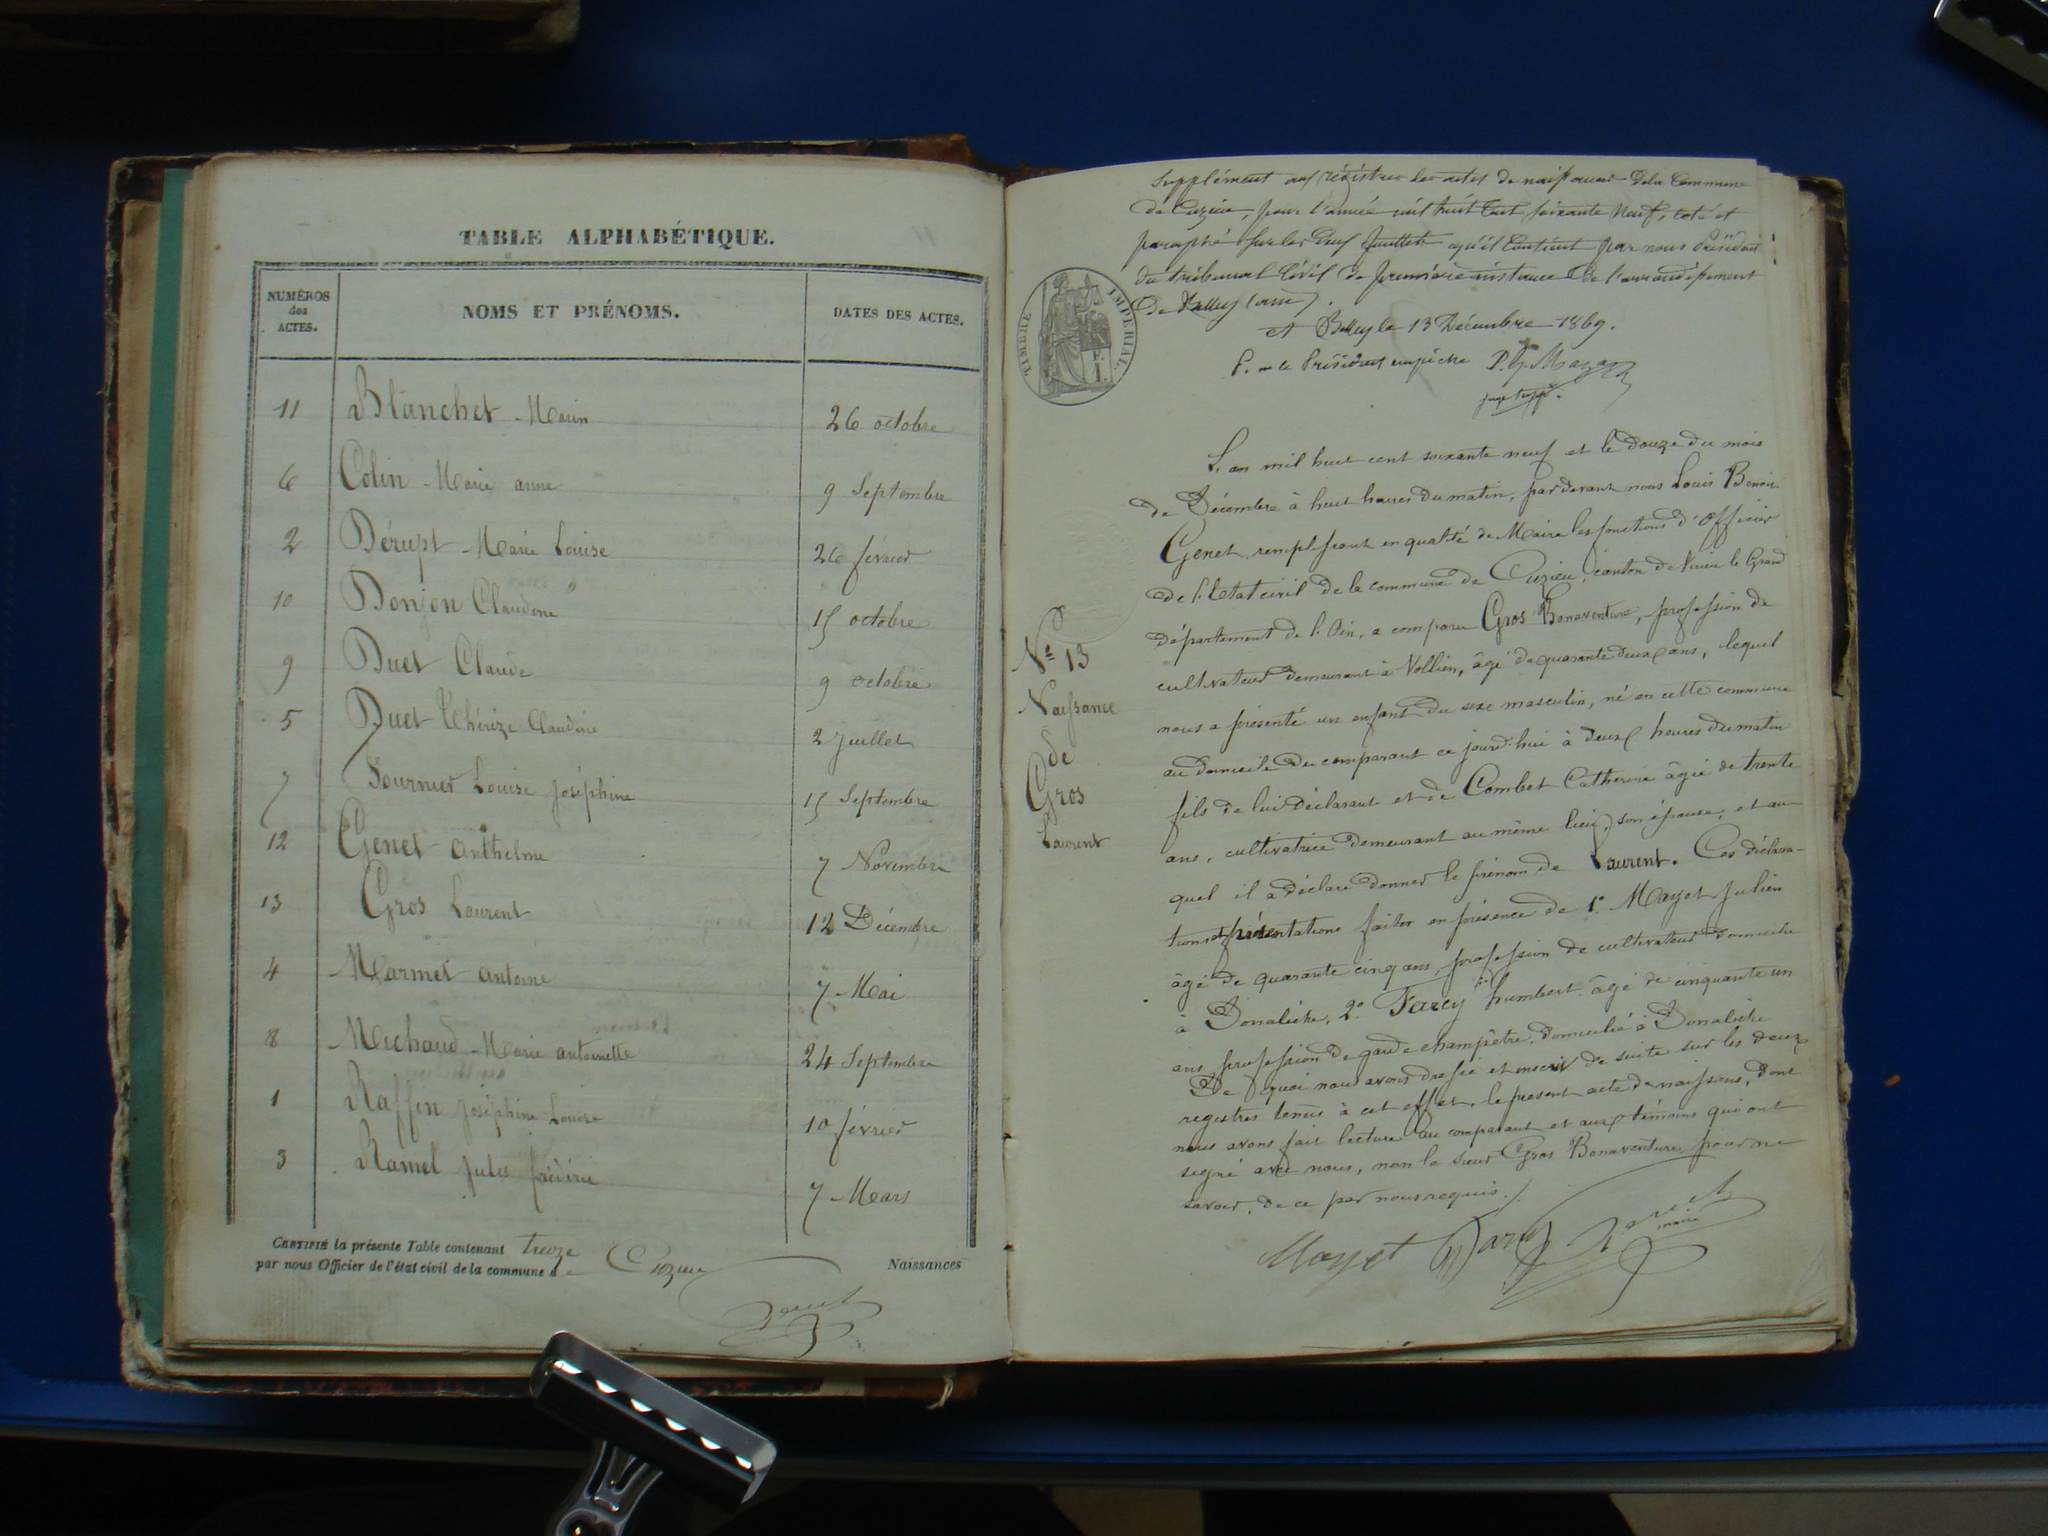 TABLE ALPHABÉTIQUE.
NUMÉROS des ACTES. NOMS ET PRÉNOMS. DATES DES ACTES.
11 Blanchet Marin 26 octobre
6 Colin Marie anne 9 Septembre
2 Dérupt Marie Louise 26 février
10 Donjon Claudine 15 octobre
9 Duet Claude 9 octobre
5 Duet Thérèze Claudine 2 Juillet
7 Fournier Louise Joséphine 15 Septembre
12 Genet Anthelme 7 Novembre
13 Gros Laurent 12 Décembre
4 Marmet antoine 7 Mai
8 Michaud Marie antoinette 24 Septembre
1 Raffin Joséphine Louise 10 février
3 Ramel Jules frédéric 7 Mars
CERTIFIÉ la présente Table contenant treize
par nous Officier de l'état civil de la commune d Cuzieu
Naissances
Genet
Supplément aux régistres des actes de naissances de la Commune
de Cuzieu, pour l'année mil huit cent soixante neuf, coté et
paraphé sur les deux feuillets qu'il contient par nous Président
du tribunal Civil de première instance de l'arrondissement
de Belley (ain).
TIMBRE IMPERIAL
A Belley le 13 Décembre 1869.
P. le Président empêché
juge supp.
L'an mil huit cent soixante neuf et le douze du mois
de Décembre à huit heures du matin, par devant nous Louis Benoit
Genet remplissant en qualité de Maire les fonctions d'Officier
de l'Etat civil de la commune de Cuzieu, canton de Virieu le Grand
département de l'Ain, a comparu Gros Bonaventure, profession de
cultivateur demeurant à Vollien, âgé de quarante deux ans, lequel
nous a présenté un enfant du sexe masculin, né en cette commune
au domicile du comparant ce jourd'hui à deux heures du matin
fils de lui déclarant et de Combet Catherine âgée de trente
ans, cultivatrice demeurant au même lieu, son épouse, et au
quel il a déclaré donner le prénom de Laurent. Ces déclara-
tions et présentations faites en présence de 1° Mayet Julien
âgé de quarante cinq ans profession de cultivateur domicilié
à Bonalèche, 2° humbert âgé de cinquante un
ans profession de garde champêtre domicilié à Bonalèche
De quoi nous avons dressé et inscrit de suite sur les deux
registres tenus à cet effet, le présent acte de naissance, dont
nous avons fait lecture au comparant et aux témoins qui ont
signé avec nous, non le sieur Gros Bonaventure pour ne
savoir, de ce par nous requis.
Mayet Genet
maire
N° 13
Naissance
de
Gros
Laurent